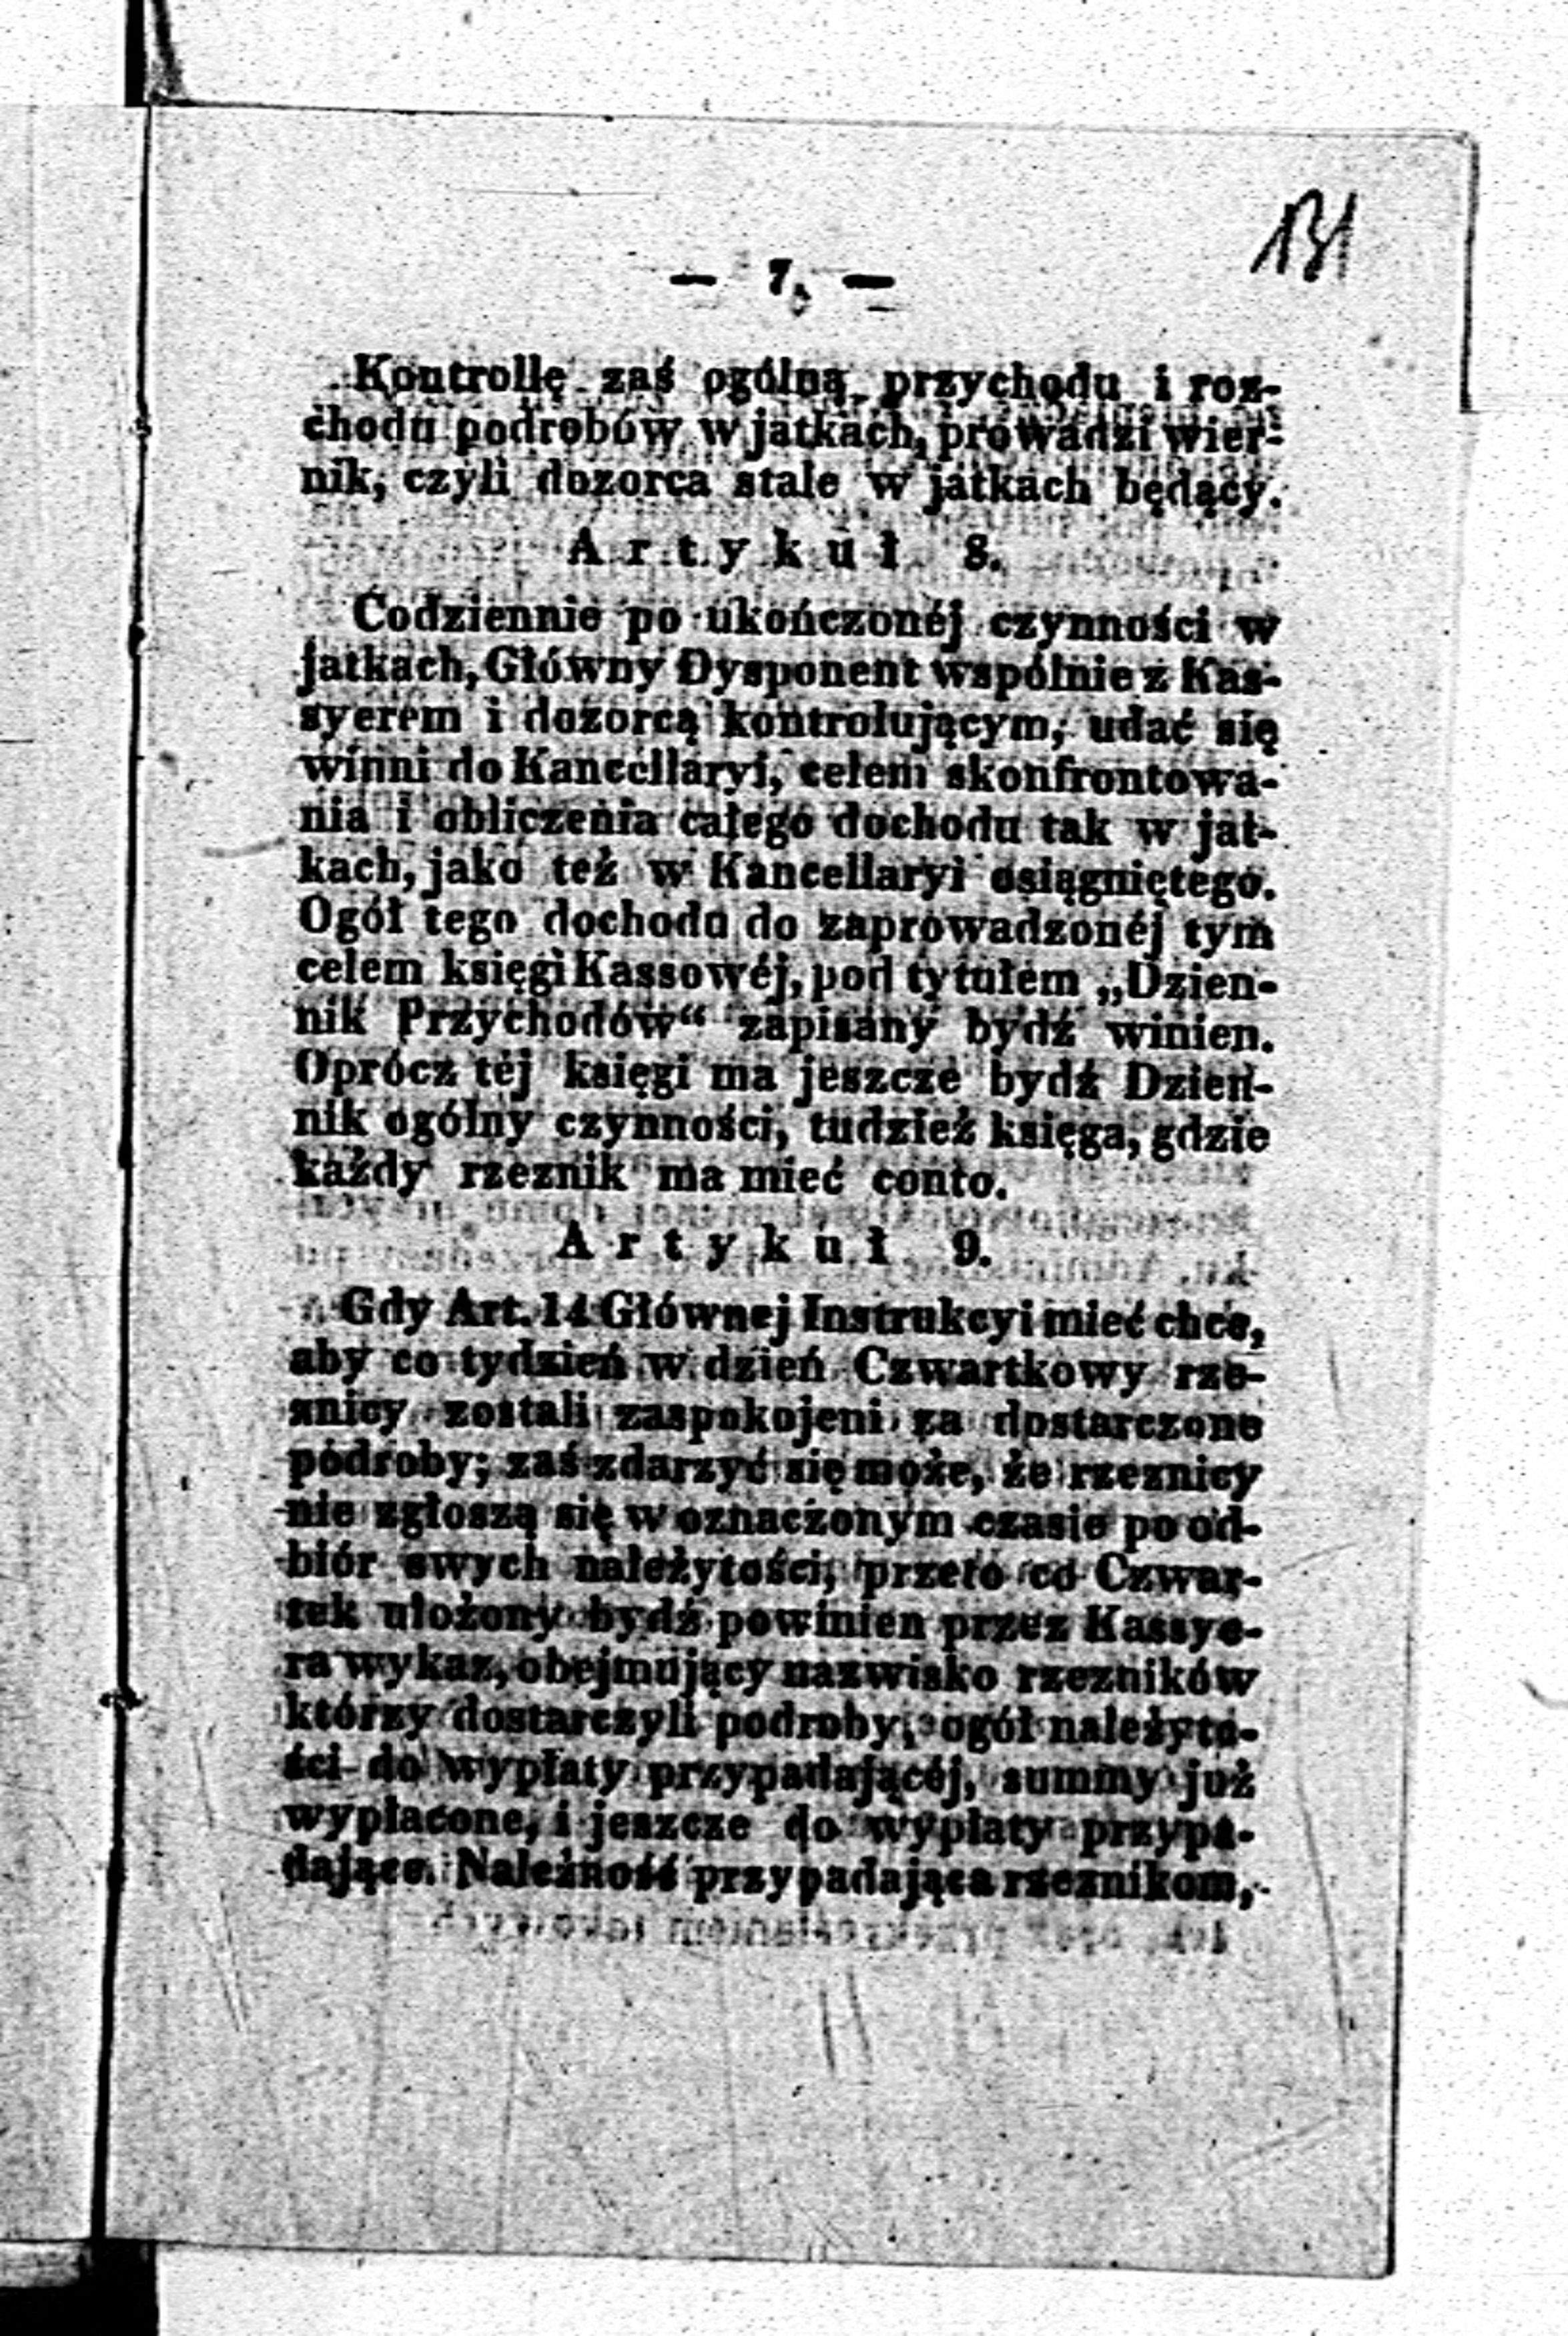 131
— 7. —
Kontrollę zaś ogólną przychodu i roz-
chodu podrobów w jatkach, prowadzi wier-
nik, czyli dozorca stale w jatkach będący.
Artykuł 8.
Codziennie po ukończonéj czynności w
jatkach, Główny Dysponent wspólnie z Kas-
syerem i dozorcą kontrolującym, udać się
winni do Kancellaryi, celem skonfrontowa-
nia i obliczenia całego dochodu tak w jat-
kach, jako też w Kancellaryi osiągniętego.
Ogół tego dochodu do zaprowadzonéj tym
celem księgi Kassowéj, pod tytułem „Dzien-
nik Przychodów“ zapisany bydź winien.
Oprócz téj księgi ma jeszcze bydź Dzien-
nik ogólny czynności, tudzież księga, gdzie
każdy rzeznik ma mieć conto.
Artykuł 9.
Gdy Art. 14 Głównej Instrukcyi mieć chce,
aby co tydzień w dzień Czwartkowy rze-
znicy zostali zaspokojeni za dostarczone
podroby; zaś zdarzyć się może, że rzeznicy
nie zgłoszą się w oznaczonym czasie po od-
biór swych należytości, przeto co Czwar-
tek ułożony bydź powinien przez Kassye-
ra wykaz, obejmujący nazwisko rzezników
którzy dostarczyli podroby, ogół należyto-
ści do wypłaty przypadającéj, summy już
wypłacone, i jeszcze do wypłaty przypa-
dające. Należność przypadająca rzeznikom,